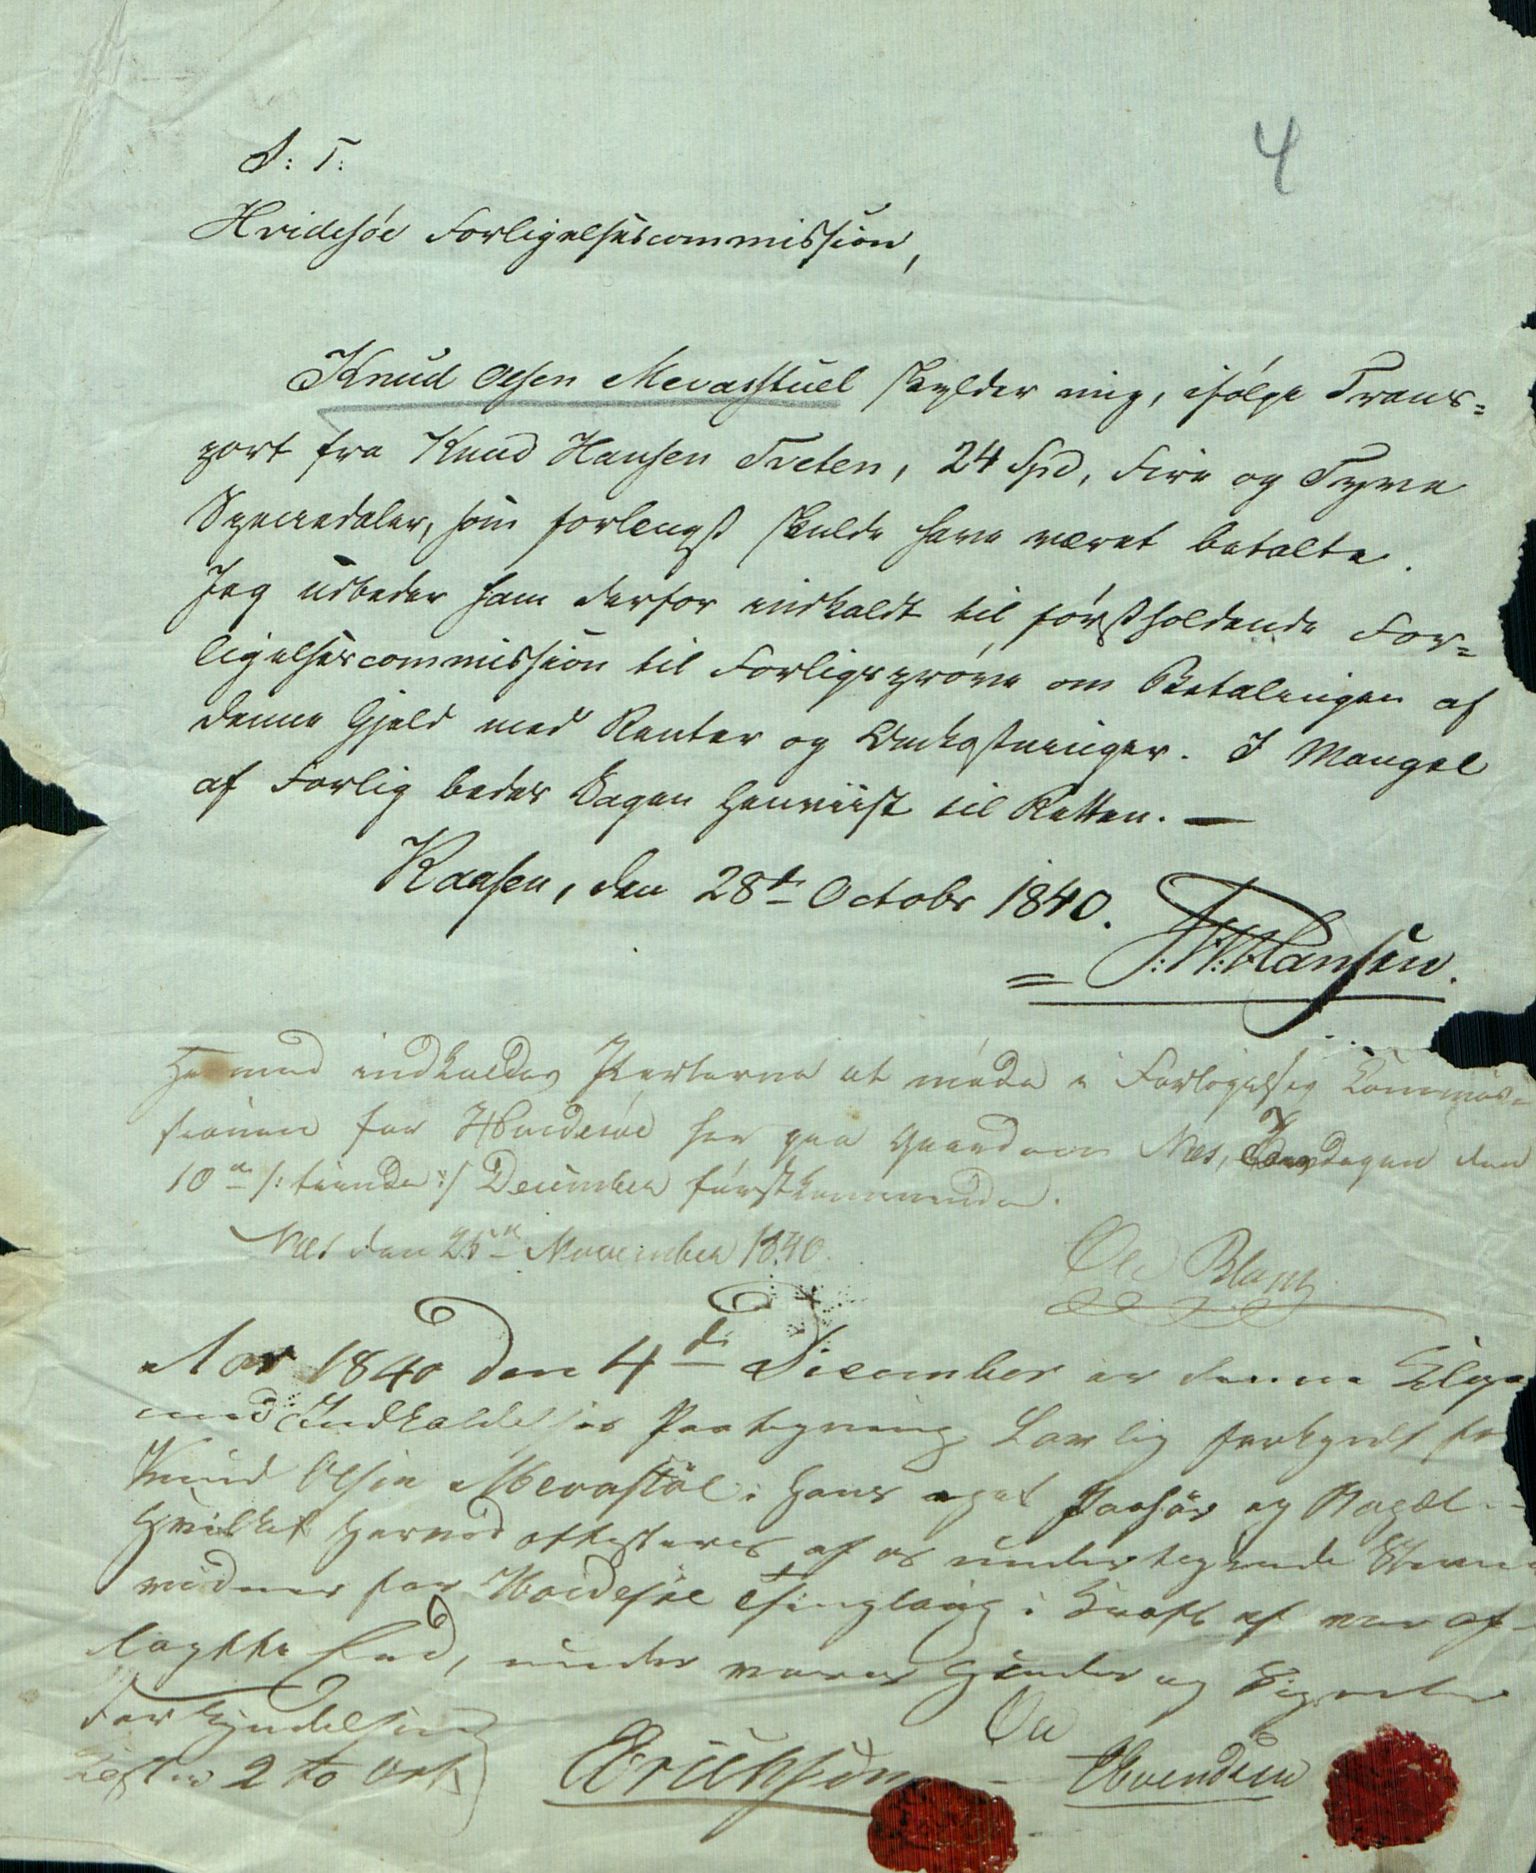 4
S: T:
Hvidesøe Forligelsescommission,
Knud Olsen Mevasstuel skylder mig, ifølge Trans=
port fra Knud Hansen Tveten, 24 Spd, Fire og Tyve
Speciedaler, som forlengst skulde have været betalte.
Jeg udbeder ham derfor indkaldt til førstholdende For=
ligelsescommission til Forligsprøve om Betalingen af
denne Gjeld med Renter og Omkostninger. I Mangel
af Forlig bedes Sagen henviist til Retten. —
Kaasen, den 28de Octobr 1840.
Hansen.
Hermed indkaldes Parterne at møde i Forligelses Commis=
sionen for Hvidesøe her paa Gaarden Næs, Torsdagen den
10de /: tiende :/ December førstkommende.
Næs den 25de November 1840.
Ole
Aar 1840 den 4de December er denne Klage
med Indkaldelses Paategning Lovlig forkyndt for
Knud Olsen Mevastøl i Hans eget Paahør og Bopæl
Hvilket Herved attesteres af os undertegnede Stevne
vidner for Hvidesøe Thinglaug i Kraft af vor af-
lagte Eed, under vores Hænder og Signeter
Forkyndelsen
koster 2 to Ort
Erichsen
Ole
Evendsen